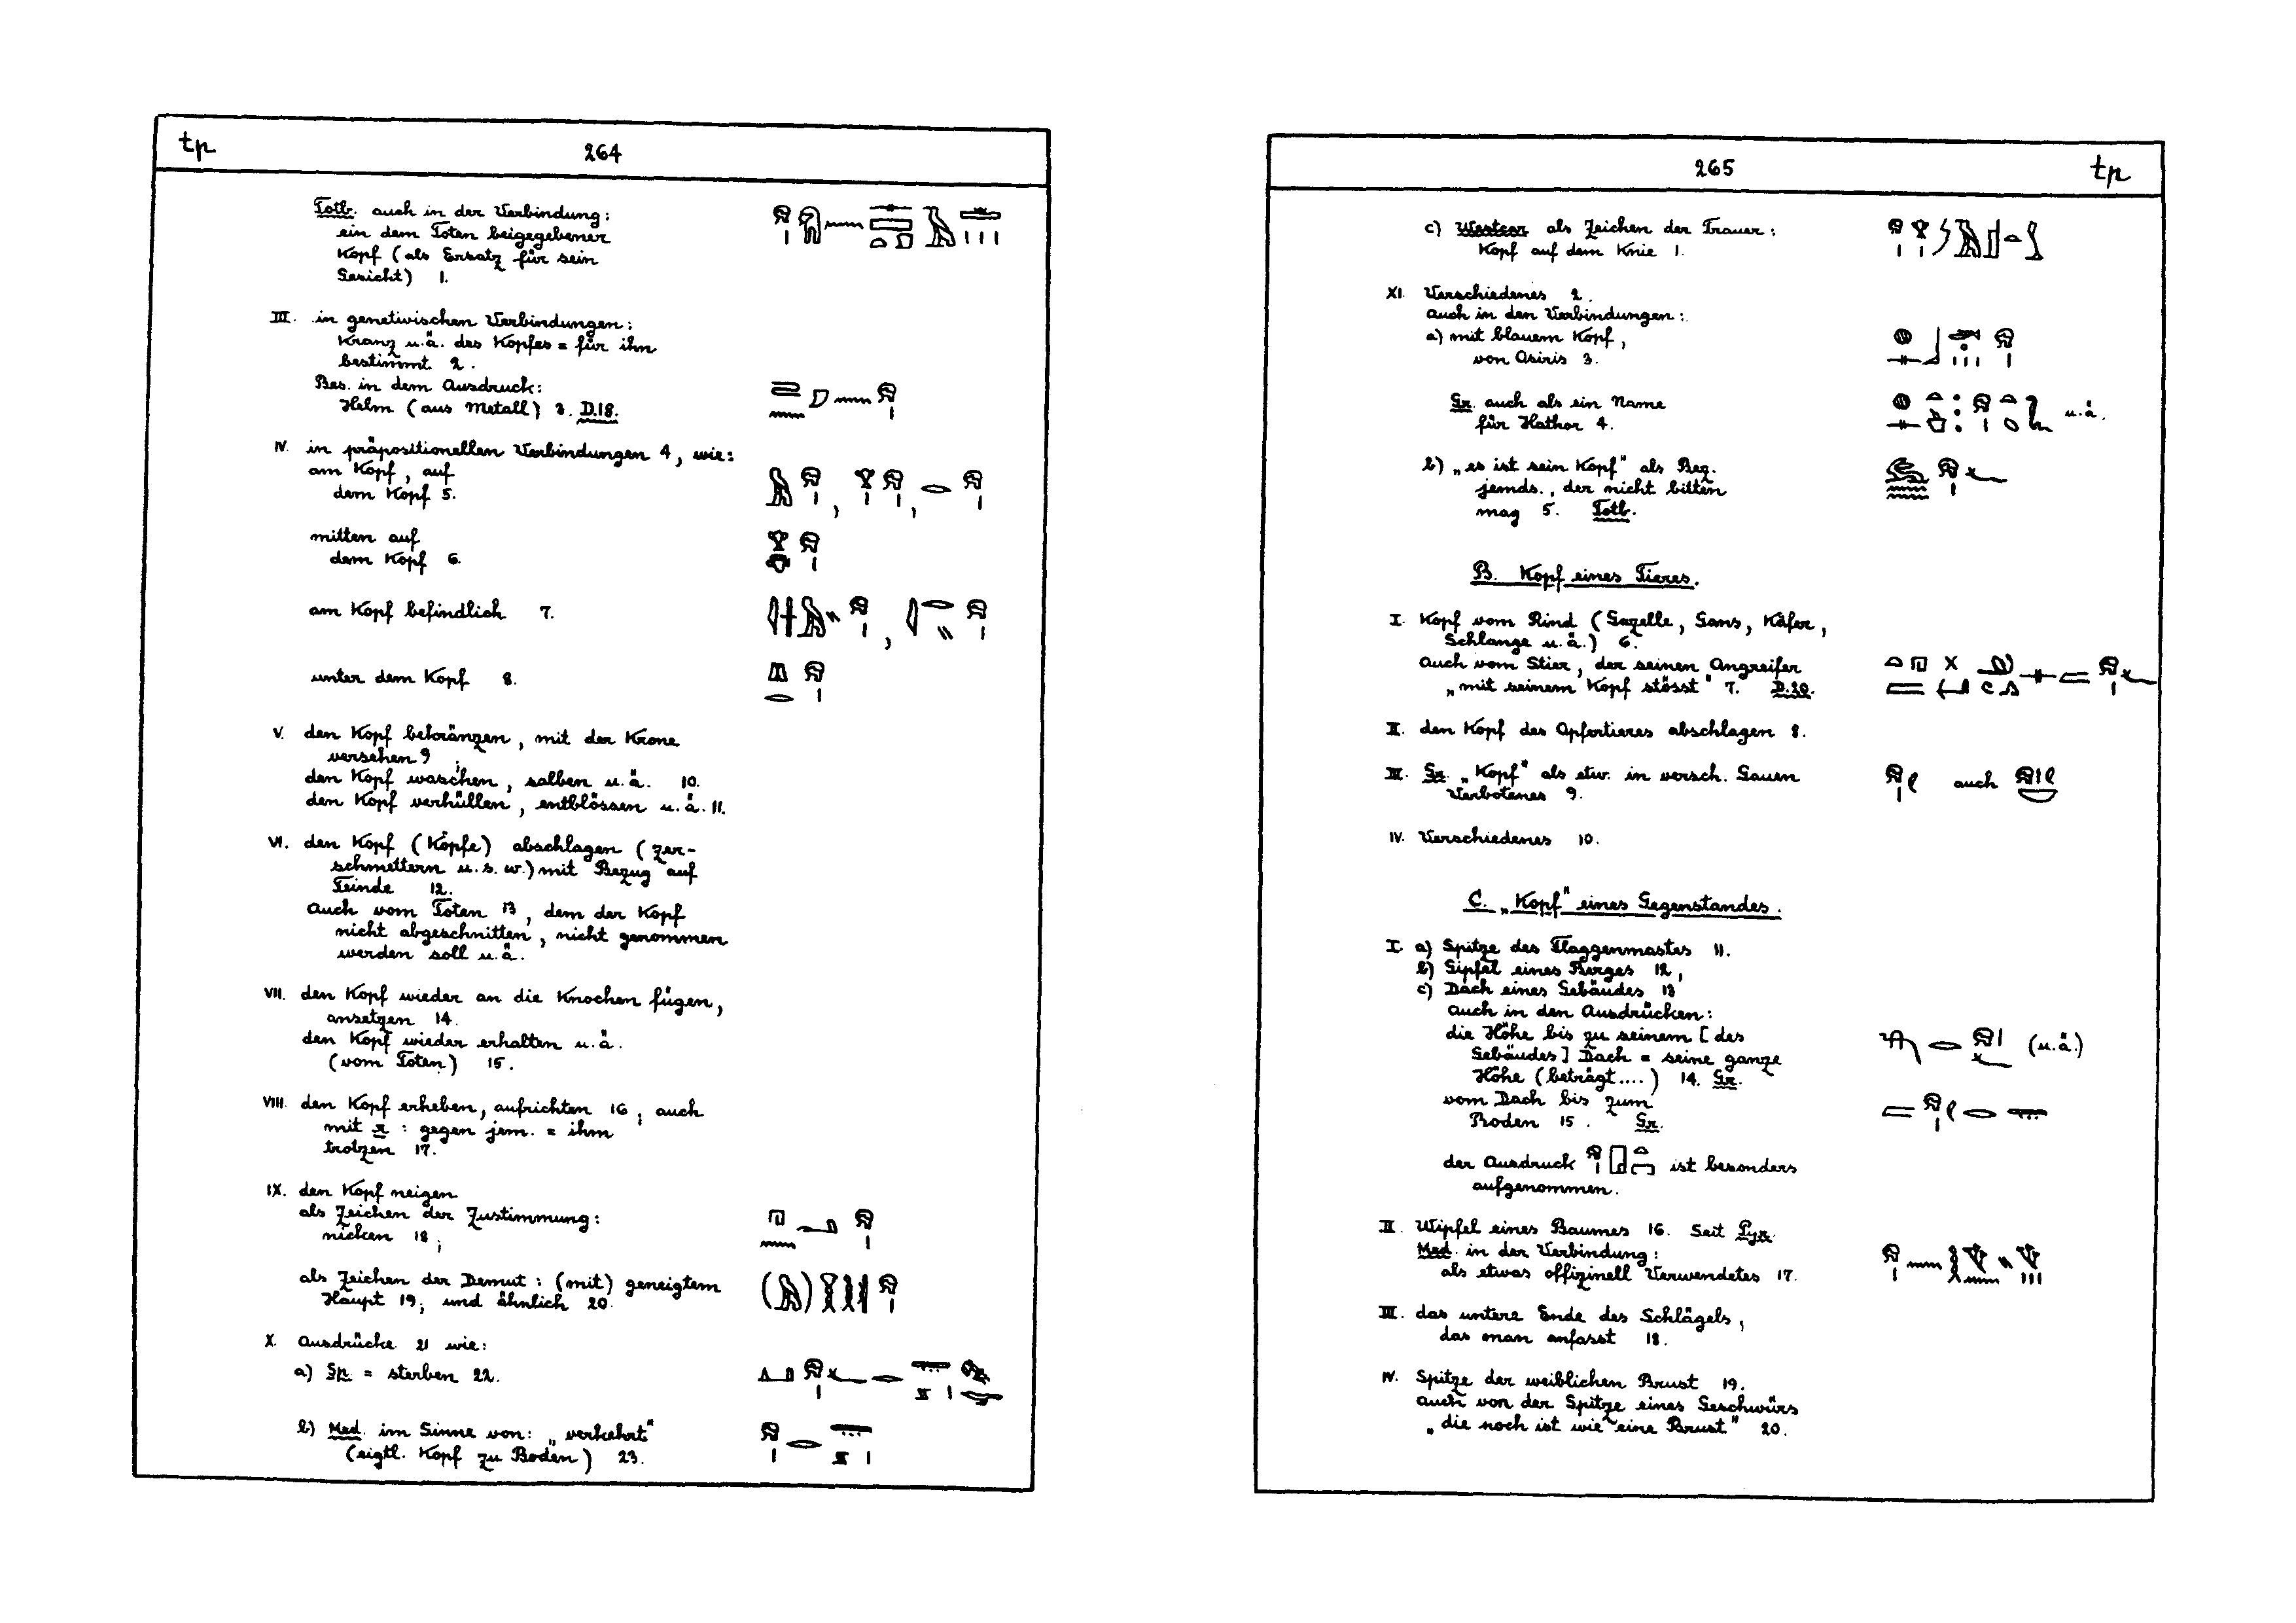 tp
264
Totb. auch in der Verbindung:
ein dem Toten beigegebener
Kopf (als Ersatz für sein
Gesicht) 1.
III. in genetivischen Verbindungen:
Kranz u.ä. des Kopfes = für ihn
bestimmt 2.
Bes. in dem Ausdruck:
Helm (aus Metall) 3. D.18.
IV. in präpositionellen Verbindungen 4, wie:
am Kopf, auf
dem Kopf 5.
mitten auf
dem Kopf 6.
am Kopf befindlich 7.
unter dem Kopf 8.
V. den Kopf bekränzen, mit der Krone
versehen 9;
den Kopf waschen, salben u.ä. 10.
den Kopf verhüllen, entblössen u.ä. 11.
VI. den Kopf (Köpfe) abschlagen (zer-
schmettern u.s.w.) mit Bezug auf
Feinde 12.
Auch vom Toten 13, dem der Kopf
nicht abgeschnitten, nicht genommen
werden soll u.ä.
VII. den Kopf wieder an die Knochen fügen,
ansetzen 14.
den Kopf wieder erhalten u.ä.
(vom Toten) 15.
VIII. den Kopf erheben, aufrichten 16; auch
mit r : gegen jem. = ihm
trotzen 17.
IX. den Kopf neigen
als Zeichen der Zustimmung:
nicken 18;
als Zeichen der Demut: (mit) geneigtem
Haupt 19; und ähnlich 20.
X. Ausdrücke 21 wie:
a) Sp = sterben 22.
b) Med. im Sinne von: „verkehrt"
(eigtl. Kopf zu Boden) 23.
265
tp
c) Westcar als Zeichen der Trauer:
Kopf auf dem Knie 1.
XI. Verschiedenes 2.
Auch in den Verbindungen:
a) mit blauem Kopf,
von Osiris 3.
Gr. auch als ein Name
für Hathor 4. u.ä.
b) „es ist sein Kopf" als Bez.
jemds., der nicht bitten
mag 5. Totb.
B. Kopf eines Tieres.
I. Kopf vom Rind (Gazelle, Gans, Käfer,
Schlange u.ä.) 6.
Auch vom Stier, der seinen Angreifer
„mit seinem Kopf stösst" 7. D.20.
II. den Kopf des Opfertieres abschlagen 8.
III. Gr. „Kopf" als etw. in versch. Gauen auch
Verbotenes 9.
IV. Verschiedenes 10.
C. „Kopf" eines Gegenstandes.
I. a) Spitze des Flaggenmastes 11.
b) Gipfel eines Berges 12,
c) Dach eines Gebäudes 13
auch in den Ausdrücken:
die Höhe bis zu seinem [des (u.ä.)
Gebäudes] Dach = seine ganze
Höhe (beträgt....) 14. Gr.
vom Dach bis zum
Boden 15. Gr.
der Ausdruck ist besonders
aufgenommen.
II. Wipfel eines Baumes 16. Seit Pyr.
Med. in der Verbindung:
als etwas offizinell Verwendetes 17.
III. das untere Ende des Schlägels,
das man anfasst 18.
IV. Spitze der weiblichen Brust 19.
auch von der Spitze eines Geschwürs
„die noch ist wie eine Brust" 20.